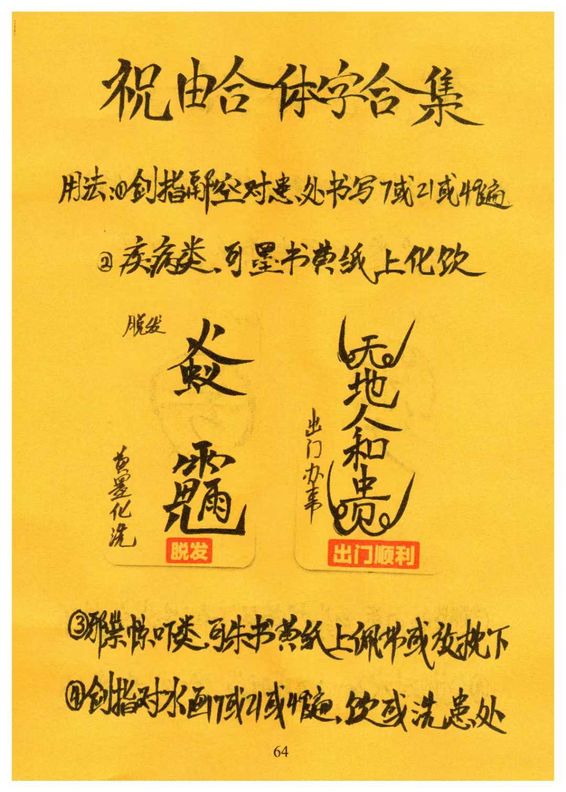 祝由合体字合集
用法:①剑指隔空对患处书写7或21或49遍
②疾病类、可墨书黄纸上化饮
脱发
黄墨化洗
脱发
天地人和中贵
出门办事
出门顺利
③邪祟惊吓类、可朱书黄纸上佩带或放枕下
④剑指对水画7或21或49遍、饮或洗患处
64